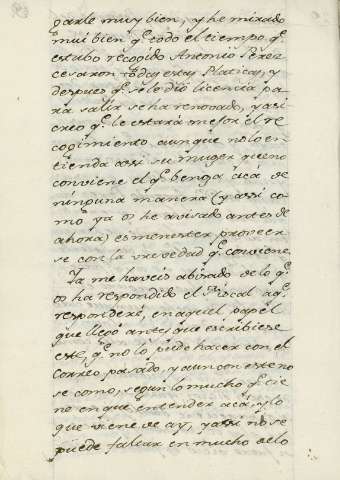 garle muy bien, y he mirado
mui bien q.e todo el tiempo q.e
estubo recogido Antonio Perez
cesaron todas estas Platicas, y
despues q.e se lo dió licencia pa
ra salir se ha renovado, y asi
creo q.e le estará mejor el re
cogimiento aunque no lo en
tienda assi su muger que no
conviene el q.e benga acá de
ninguna manera (y assi co
mo ya os he avisado antes de
ahora) es menester proveer
se con la brevedad q.e conviene.
Ya me haveis abisado de lo q.e
os ha respondido el Fiscal aq.e
responderé, en aquel papel
que llegó antes que escribiese
este, q.e no lo pude hacer con el
Correo pasado, y aun con este no
se como, segun lo mucho q.e tie
ne en que entender acá, y lo
que viene de ay, y assi no se
puede faltar en mucho de lo